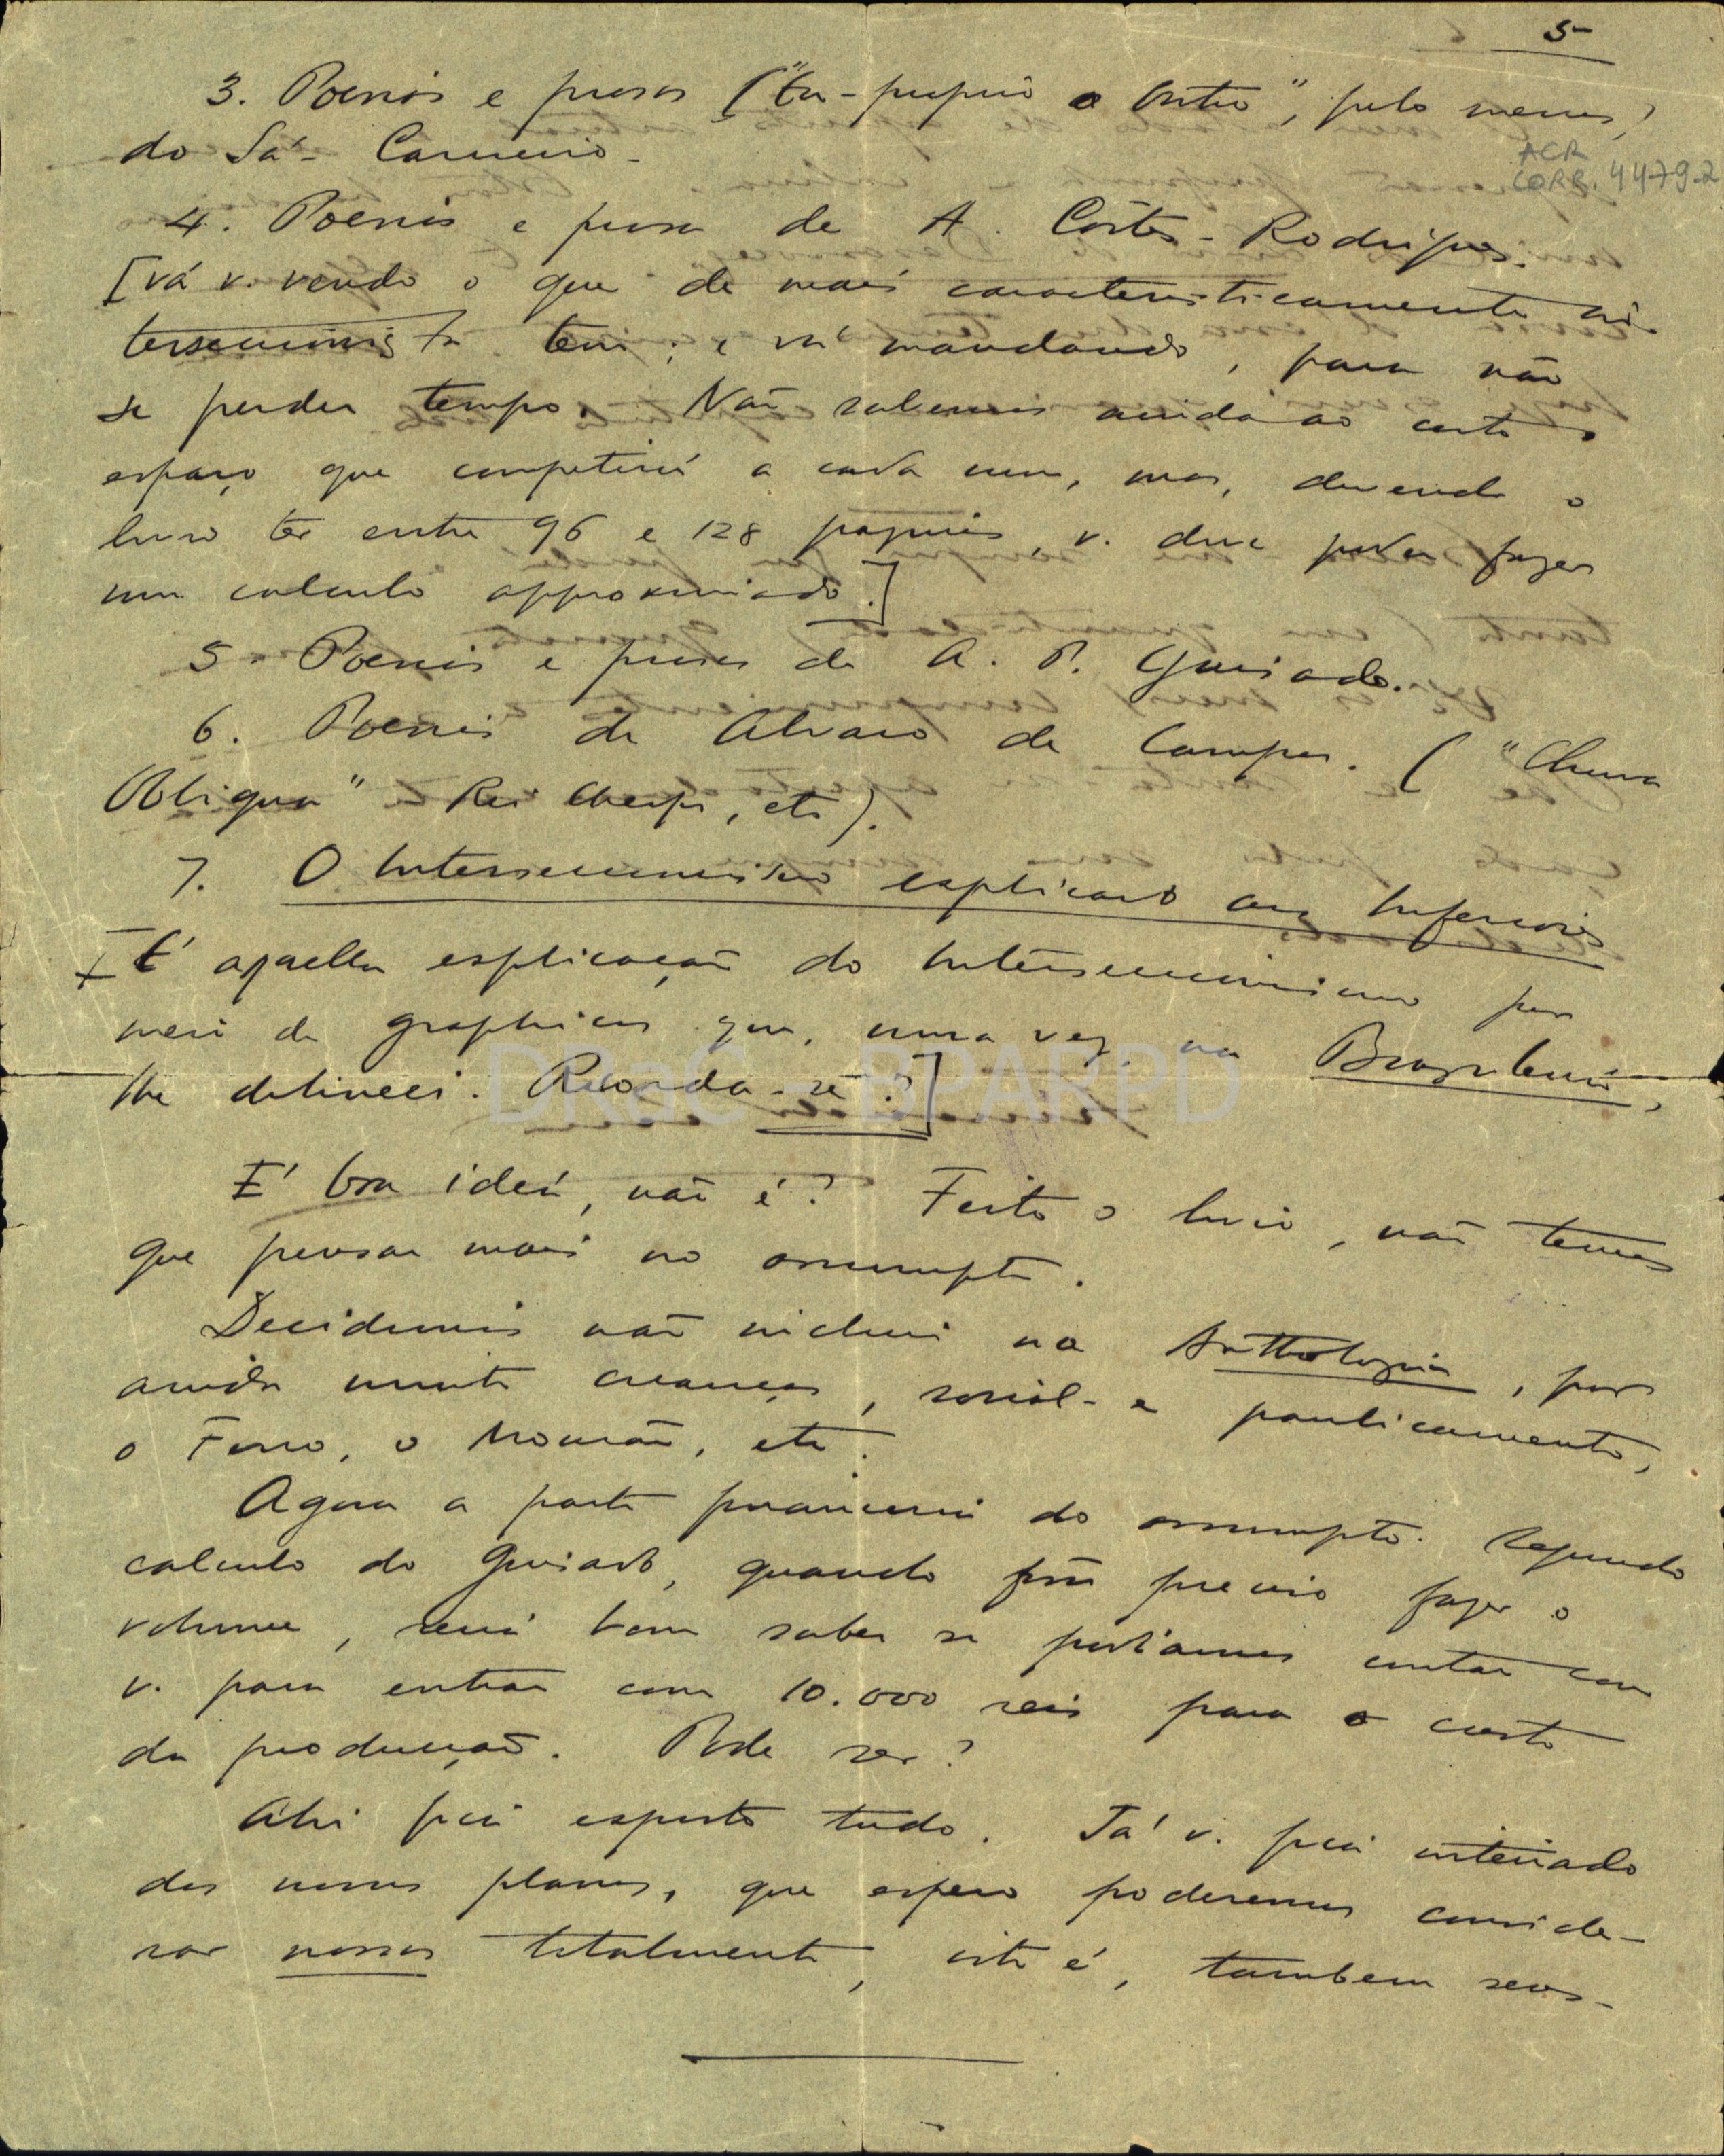 5
3. Poemas e prosas ("Eu-proprio o Outro", pelo menos)
do Sá-Carneiro.
ACR
CORR. 4479-2
4. Poemas e prosa de A. Côrtes-Rodrigues.
[vá v. vendo o que de mais caracteristicamente in-
terseccionista tem; e vá mandando, para não
se perder tempo. Não sabemos ainda ao certo o
espaço que competirá a cada um, mas, devendo o
livro ter entre 96 e 128 paginas, v. deve poder fazer
um calculo approximado.]
5. Poemas e prosas de A. P. Guisado.
6. Poemas de Alvaro de Campos. ("Chuva
Obliqua" – Rei Cheops, etc).
7. O Interseccionismo explicado aos Inferiores
[É aquella explicação do Interseccionismo por
meio de graphicos que, uma vez, na Brazileira,
lhe delineei. Recorda-se?]
DRaC - BPARPD
E' boa ideia, não é? Feito o livro, não temos
que pensar mais no assumpto.
Decidimos não incluir na Anthologia, por
ainda muito creanças, social- e paulicamente,
o Ferro, o Mourão, etc.
Agora a parte financeira do assumpto. Segundo
calculo do Guisado, quando fôr preciso fazer o
volume, será bom saber se podiamos contar com
v. para entrar com 10.000 reis para o custo
da producção. Pode ser?
Ahi fica exposto tudo. Já v. fica inteirado
dos nossos planos, que espero poderemos conside-
rar nossos totalmente, isto é, tambem seus.